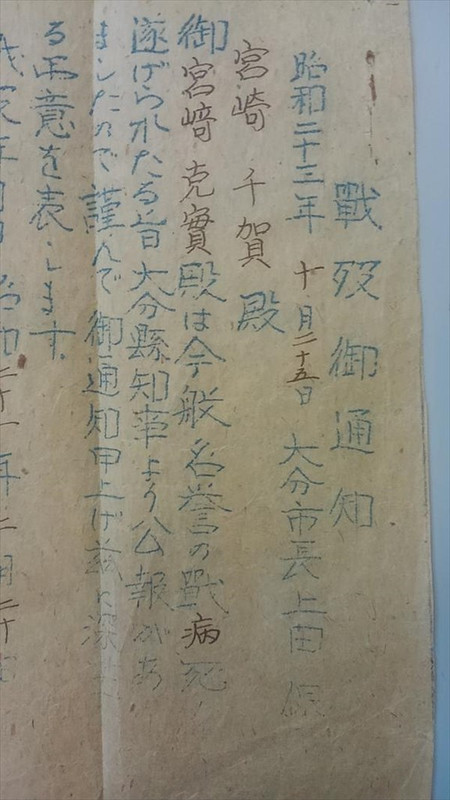 戰歿御通知
昭和二十三年 十月二十五日 大分市長上田保
宮崎 千賀 殿
御宮﨑克實殿は今般名誉の戰病死
遂げられたる旨大分縣知事より公報があ
りましたので謹んで御通知申上げ茲に深甚
る弔意を表します.
年月日 昭和二十一年二月二十